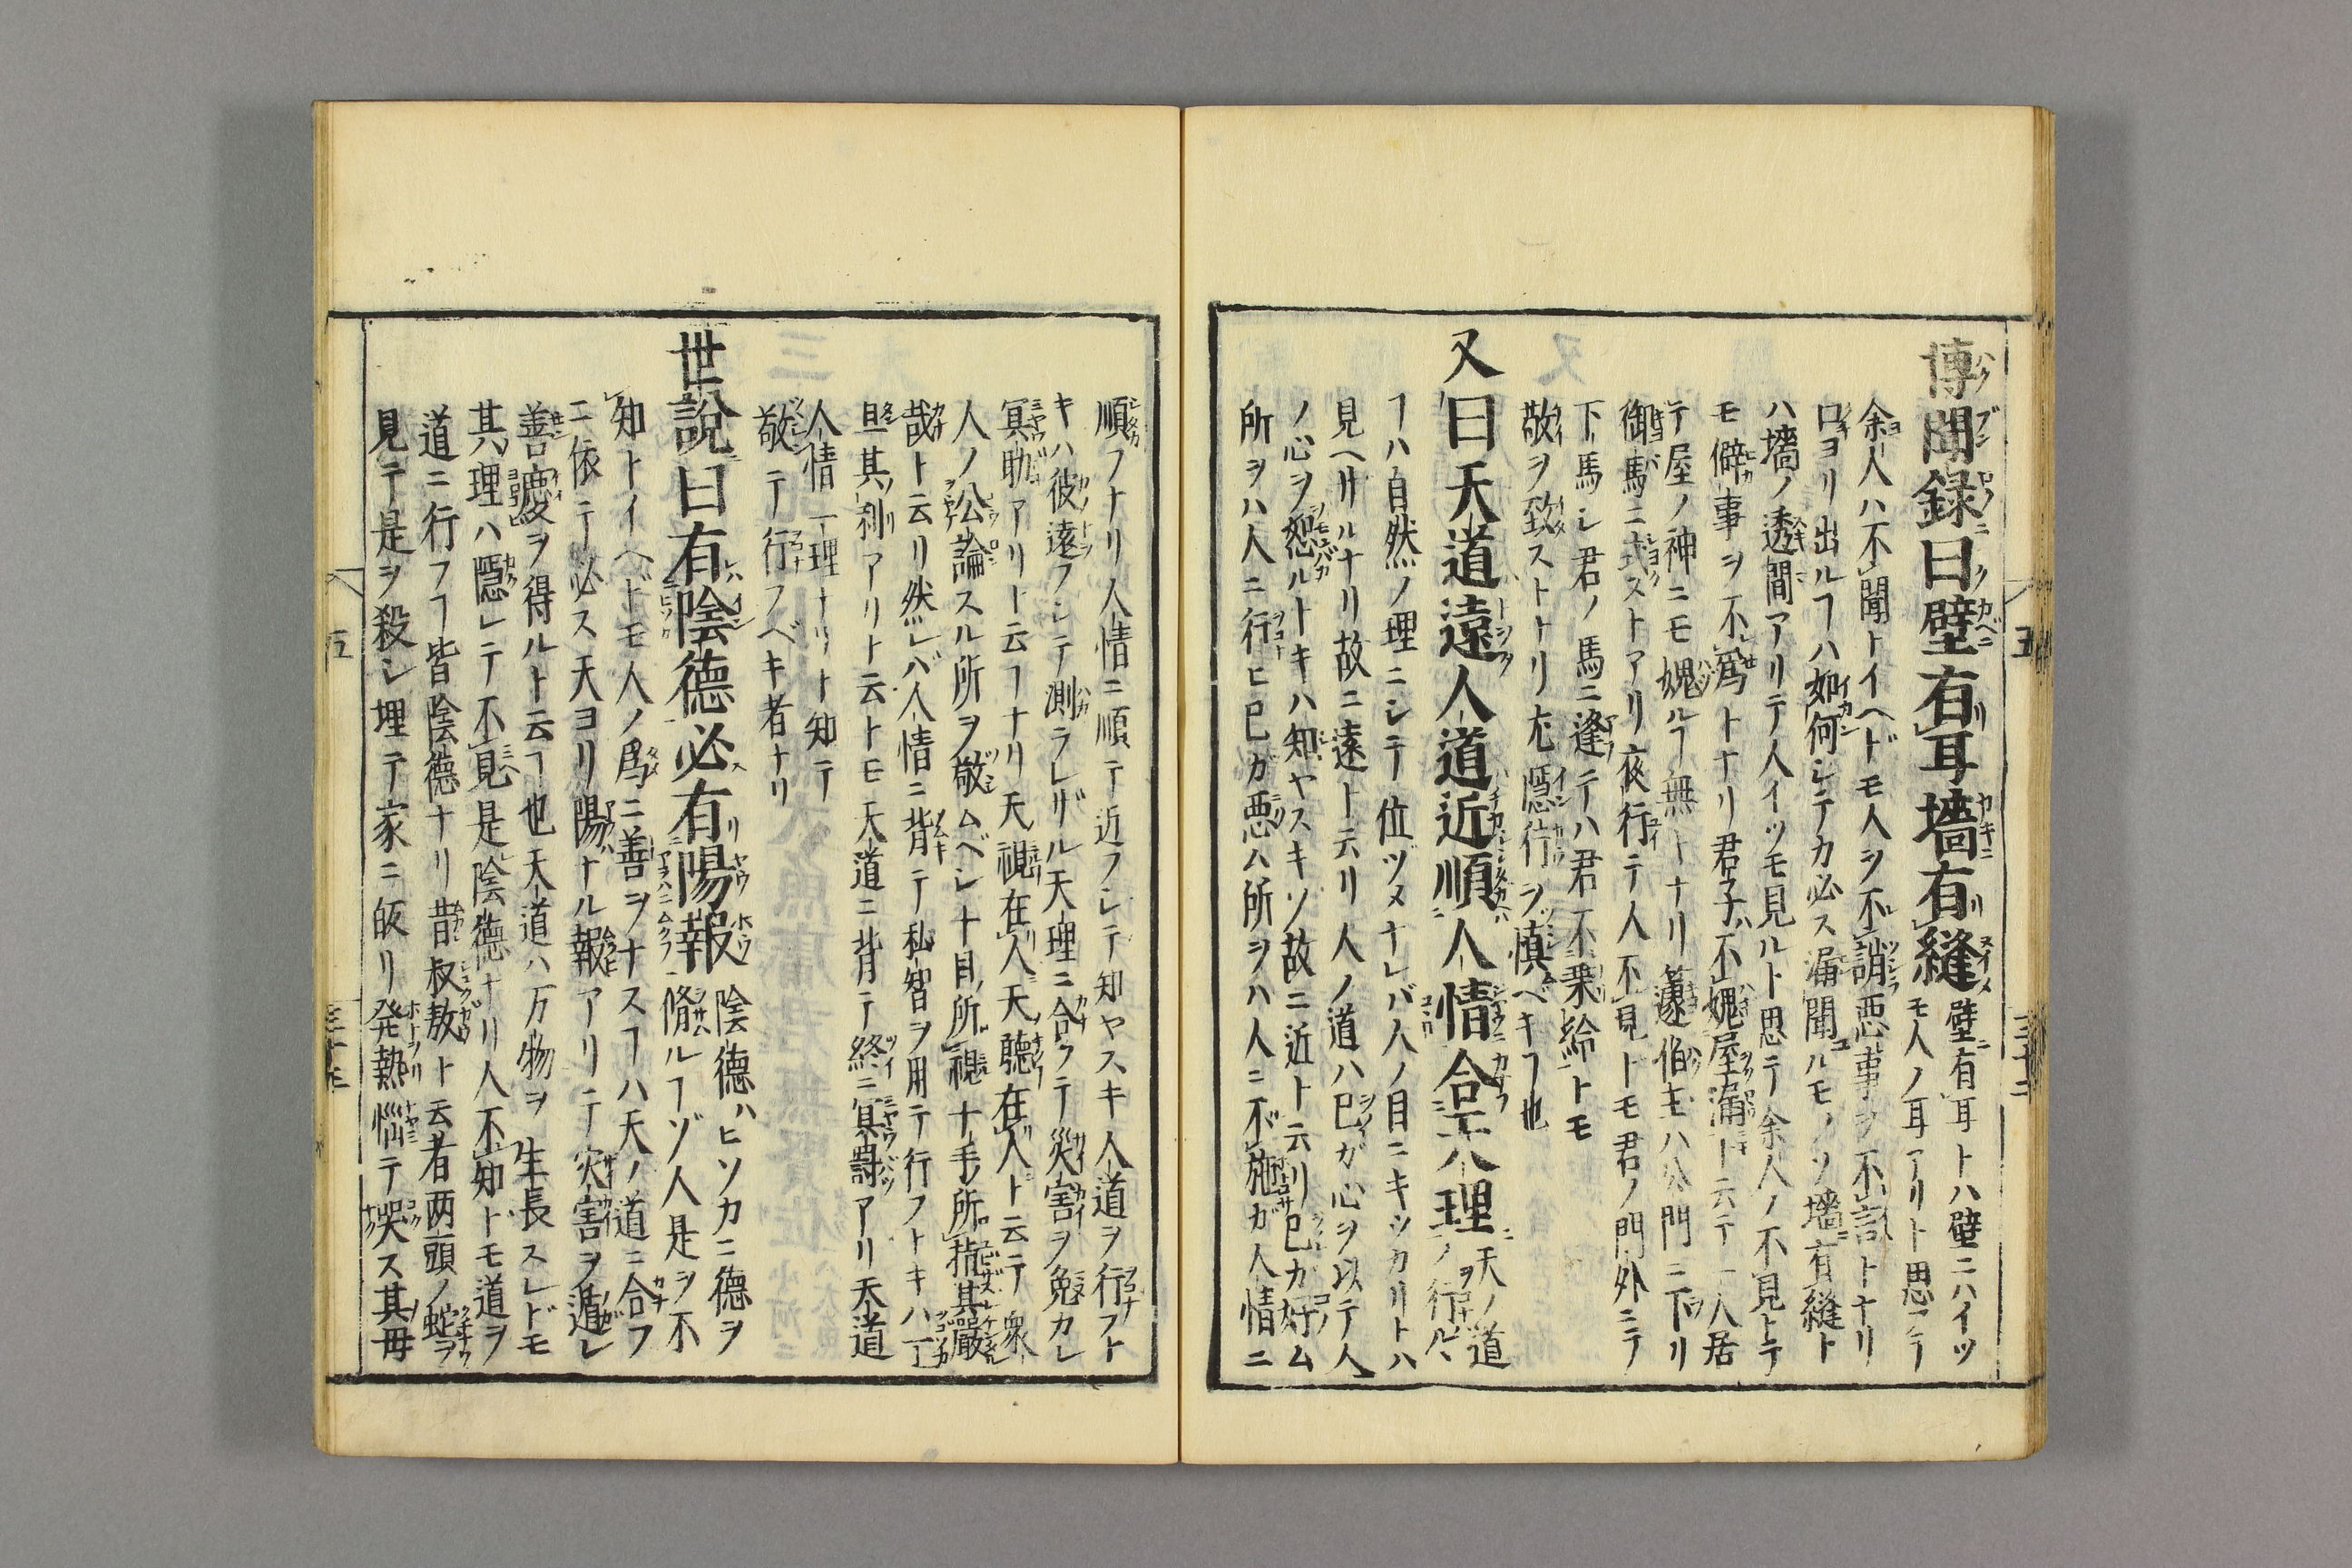 博聞録曰壁有耳墻有縫 壁有耳トハ壁ニハイツ
モ人ノ耳アリト思フテ
余人ハ不聞トイヘドモ人ヲ不誚悪事ヲ不言トナリ
口ヨリ出ルヿハ如何シテカ必ス漏聞ルモノソ墻有縫ト
ハ墻ノ透間アリテ人イツモ見ルト思テ余人ノ不見トテ
モ僻事ヲ不爲トナリ君子ハ不媿屋漏ト云テ一人居
テ屋ノ神ニモ媿ルヿ無トナリ蘧伯玉ハ公門ニ下リ
御馬ニ式ストアリ夜行テ人不見トモ君ノ門外ニテ
下馬シ君ノ馬ニ逢テハ君不乗給トモ
敬ヲ致ストトリ尤隠行ヲ慎ベキヿ也
又曰天道遠人道近順人情合天理 天ノ道
ノ行ルヽ
ヿハ自然ノ理ニシテ位ヅメナレバ人ノ目ニキツカリトハ
見ヘサルナリ故ニ遠ト云リ人ノ道ハ已ガ心ヲ以テ人
ノ心ヲ恕ルトキハ知ヤスキソ故ニ近ト云リ已カ好ム
所ヲハ人ニ行ヒ已ガ悪ム所ヲハ人ニ不施ガ人情ニ
順フナリ人情ニ順テ近フシテ知ヤスキ人道ヲ行フト
キハ彼遠フシテ測ラレザル天理ニ合フテ災害ヲ免カレ
冥助アリト云フナリ天視在人天聴在人ト云テ衆
人ノ公論スル所ヲ敬ムベシ十目所視十手所指其嚴
哉ト云リ然レバ人情ニ背テ私智ヲ用テ行フトキハ一
旦其利アリト云トモ天道ニ背テ終ニ冥罸アリ天道
人情一理ナリト知テ
敬テ行フベキ者ナリ
世說曰有陰德必有陽報 陰德ハヒソカニ德ヲ
脩ルヿゾ人是ヲ不
知トイヘドモ人ノ爲ニ善ヲナスヿハ天ノ道ニ合フ
ニ依テ必ス天ヨリ陽ナル報アリテ災害ヲ遁レ
善慶ヲ得ルト云ヿ也天道ハ万物ヲ生長スレドモ
其理ハ隱レテ不見是陰德ナリ人不知トモ道ヲ
道ニ行フヿ皆陰德ナリ昔叔敖ト云者两頭ノ蛇ヲ
見テ是ヲ殺シ埋テ家ニ皈リ発熱惱テ哭ス其母
五
三十二
五